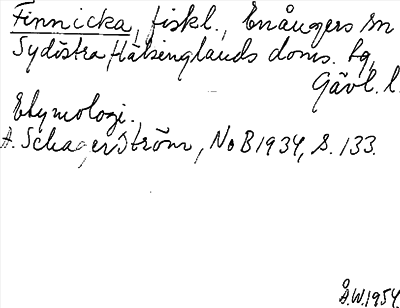 Finnicka, fiskl., Enångers sn
Sydöstra Hälsenglands doms. tg,
Gävl. l.
Etymologi.
A. Schagerström, NoB 1934, s. 133.
Å.W. 1954.